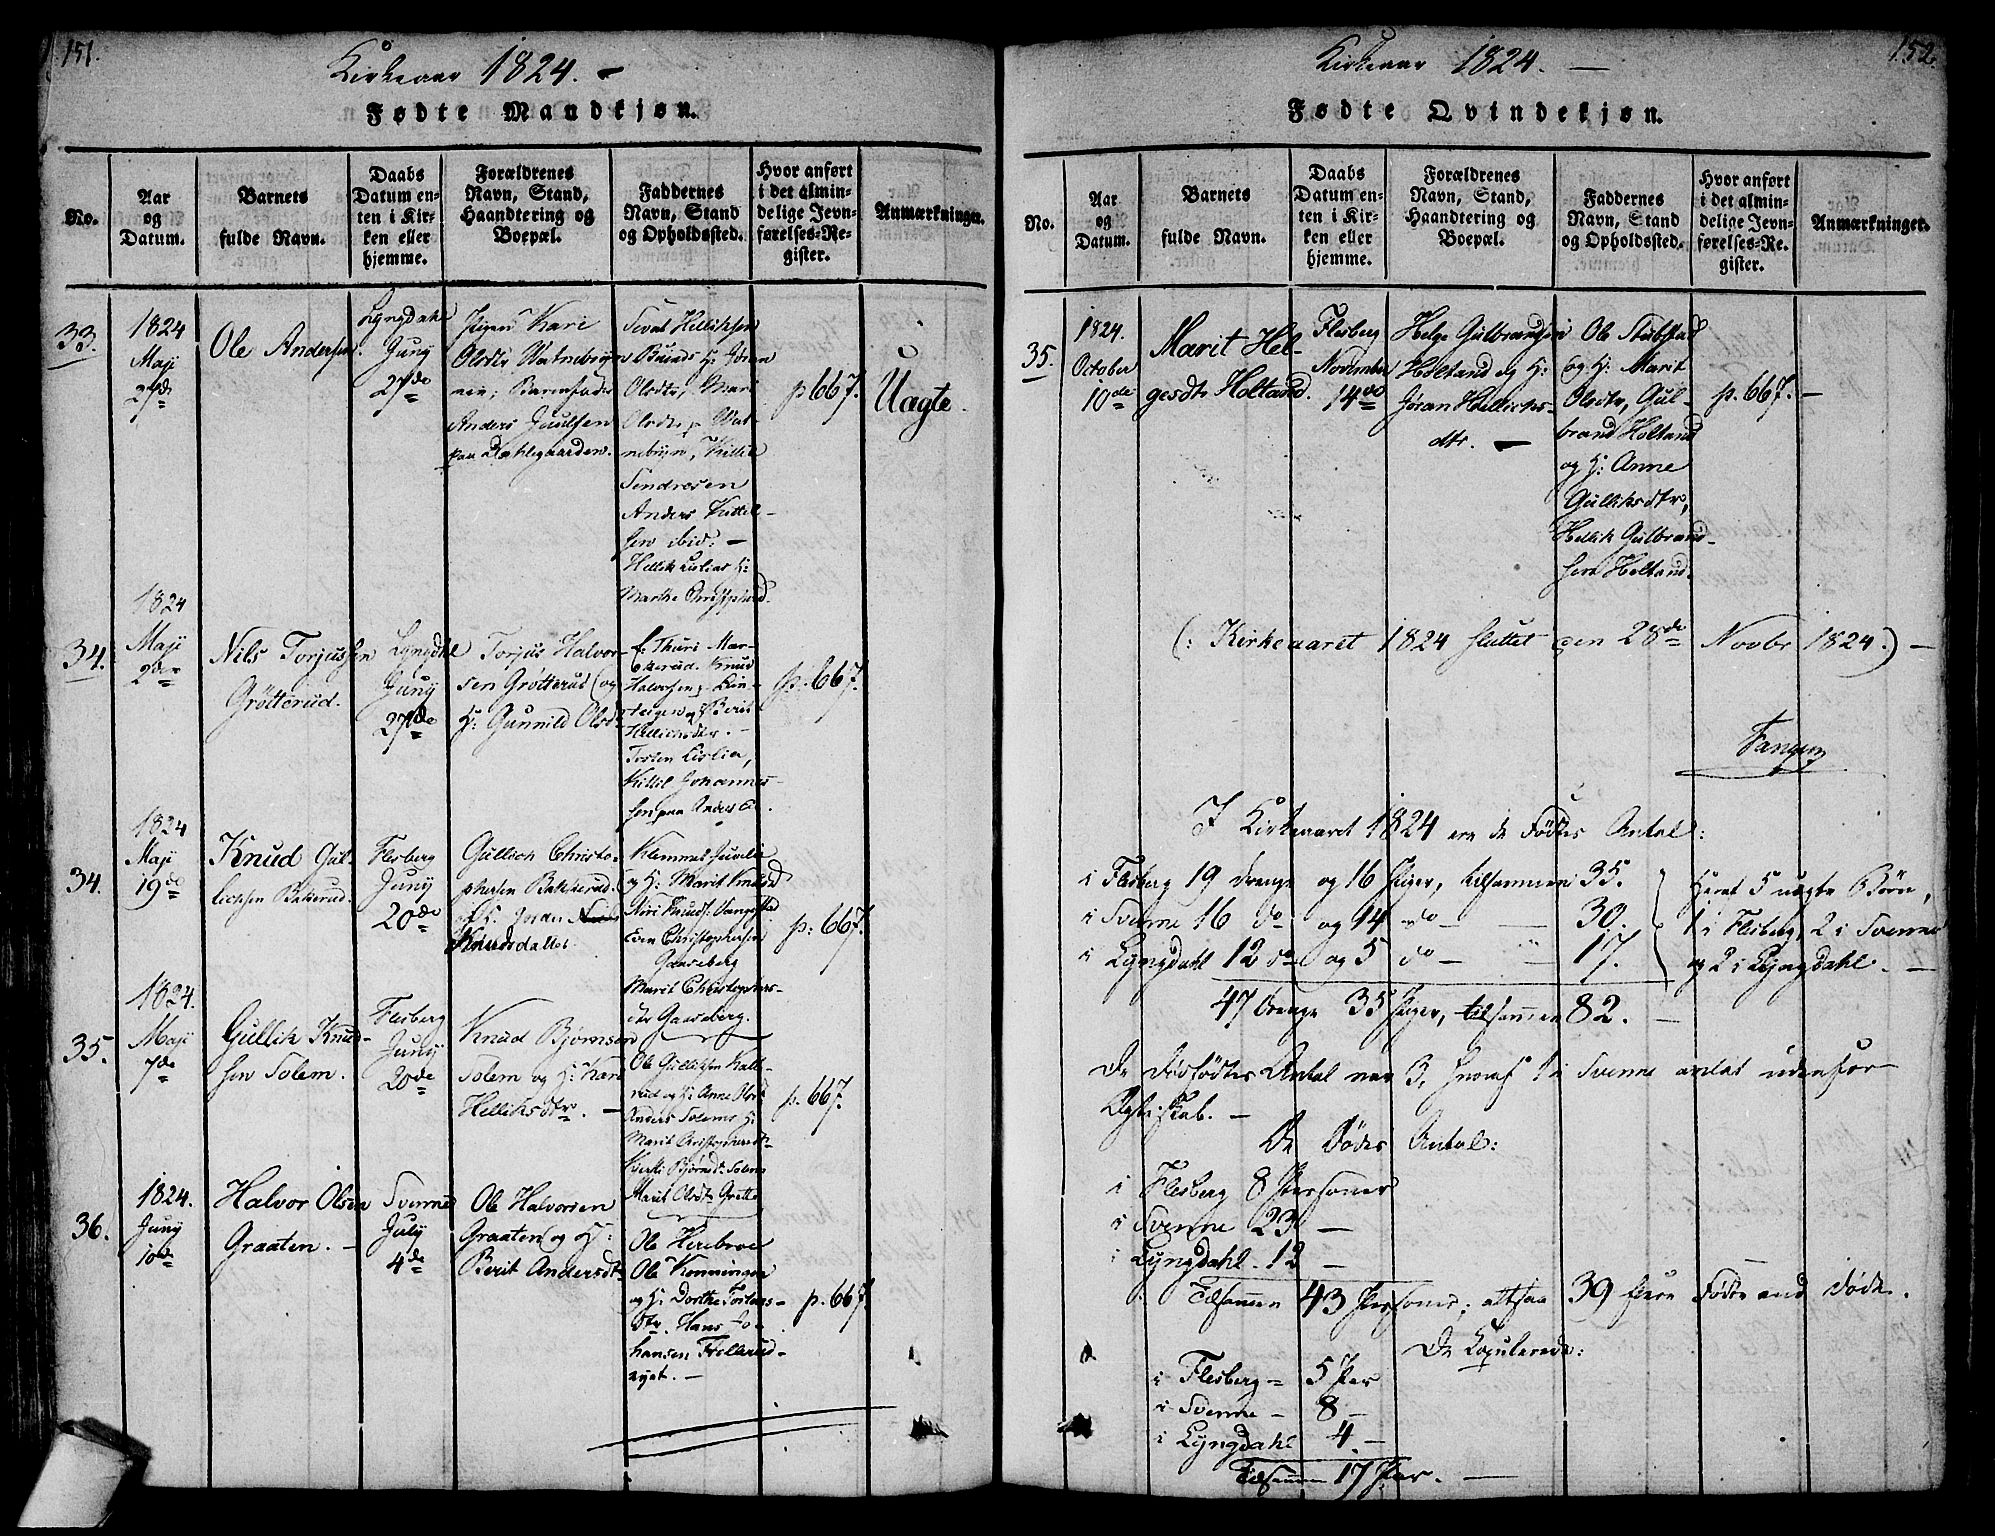 151.
Kirkeaar 1824. –
Fødte Mandkjøn.
No.
Aar
og
Datum.
Barnets
fulde Navn.
Daabs
Datum en-
ten i Kir-
ken eller
hjemme.
Forældrenes
Navn, Stand,
Haandtering og
Boepæl.
Faddernes
Navn, Stand
og Opholdssted.
Hvor anført
i det almin-
delige Jevn-
førelses-Re-
gister.
Anmærkninger.
33.
1824
Maji
Ole Andersen
Lyngdahl
Juny
27de
Pigen Kari
Olsdtr
Barnefader
Anders Juulsen
paa Dahlegaarden.
Sevat Helliksen
Olsdtr, Mari
Sendresen
Anders Kittel-
sen ibid: –
Marthe
p 667.
Uægte.
34.
1824
Maji
Nils Torjussen
Grötterud.
Lyngdhl
Juny
27de
Torjus Halvor-
sen Grötterud (og
H: Gunnild Olsdt
f. Thuri Mar-
Knud
Halvorsen
Berit
Helliksdtr. –
Torsten Lislia,
Kittil Johannes-
sen paa
p. 667.
34.
1824
Maji
19de
Knud Gul-
licksen Bakerud.
Flesberg
Juny
20de
Gullich Christo-
phersen Bakkerud
og H. Jorder
Knudsdatter.
Klemmet Juvelie
og H: Marit Knudsd
Siri Knudsd.
Even Christophersen
Gaaseberg
Marit Christophers-
dtr Gaaseberg.
p: 667.
35.
1824.
Maji
7de
Gullik Knud-
sen Solem.
Flesberg
Juny
20de
Knud Bjørnsen
Solem og H: Kari
Helliksdtr. –
Ole Gulliksen Kalle-
rud og H: Anne Olsd
Anders Solems H:
Marit Christophersdt
Bjørnsd. Solem
Marit Olsdt Grette
p. 667.
36.
1824.
Juny
10de
Halvor Olsen
Graaten. –
Svenne
July
4de
Ole Halvorsen
Graaten og H:
Berit Andersdt
Ole Herebroe
Ole Konningen
og H: Dorthe Torsteens-
dtr. Hans Jo-
hansen Frellerud-
ejet. –
p. 667.
152.
Kirkeaar 1824. –
Fødte Qvindekjøn.
No.
Aar
og
Datum.
Barnets
fulde Navn.
Daabs
Datum en-
ten i Kir-
ken eller
hjemme.
Forældrenes
Navn, Stand,
Haandtering og
Boepæl.
Faddernes
Navn, Stand
og Opholdssted.
Hvor anført
i det almin-
delige Jevn-
førelses-Re-
gister.
Anmærkninger.
35.
1824.
October
10de
Marit Hel-
gesdt Holtand.
Flesberg
November
14de
Helge Gulbrandsen
Holtand og H:
Jöran Hellichs-
dtr. –
Ole Stubstad
og H: Marit
Olsdtr, Gul-
brand Holtand
og H: Anne
Gulliksdtr,
Hellik Gulbrand-
sen Holtand.
p. 667. –
(: Kirkeaaret 1824 sluttet den 28de Novbr 1824.) –
Fangen
I Kirkeaaret 1824 ere de Fødtes Antal:
i Flesberg 19 Drenge og 16 Piger, tilsammen 35.
i Svenne 16 do og 14 do – – 30.
i Lyngdahl 12 do og 5 do – " 17.
Heraf 5 uægte Børn,
1 i Flesberg, 2 i Svenne
og 2 i Lyngdahl. –
47 Drenge 35 Piger, tilsammen 82. –
De Dødfødtes Antal var 3, hvoraf 1 i Svenne avlet udenfor
Ægteskab. –
De Dødes Antal:
i Flesberg 8 Personer
i Svenne 23 –
i Lyngdahl. 12 –
Tilsammen 43 Personer; altsaa 39 flere Fødte end Døde.
De Copulerede:
i Flesberg – 5 Par
i Svenne – 8 –
i Lyngdahl 4. –
Tilsammen 17 Par. –